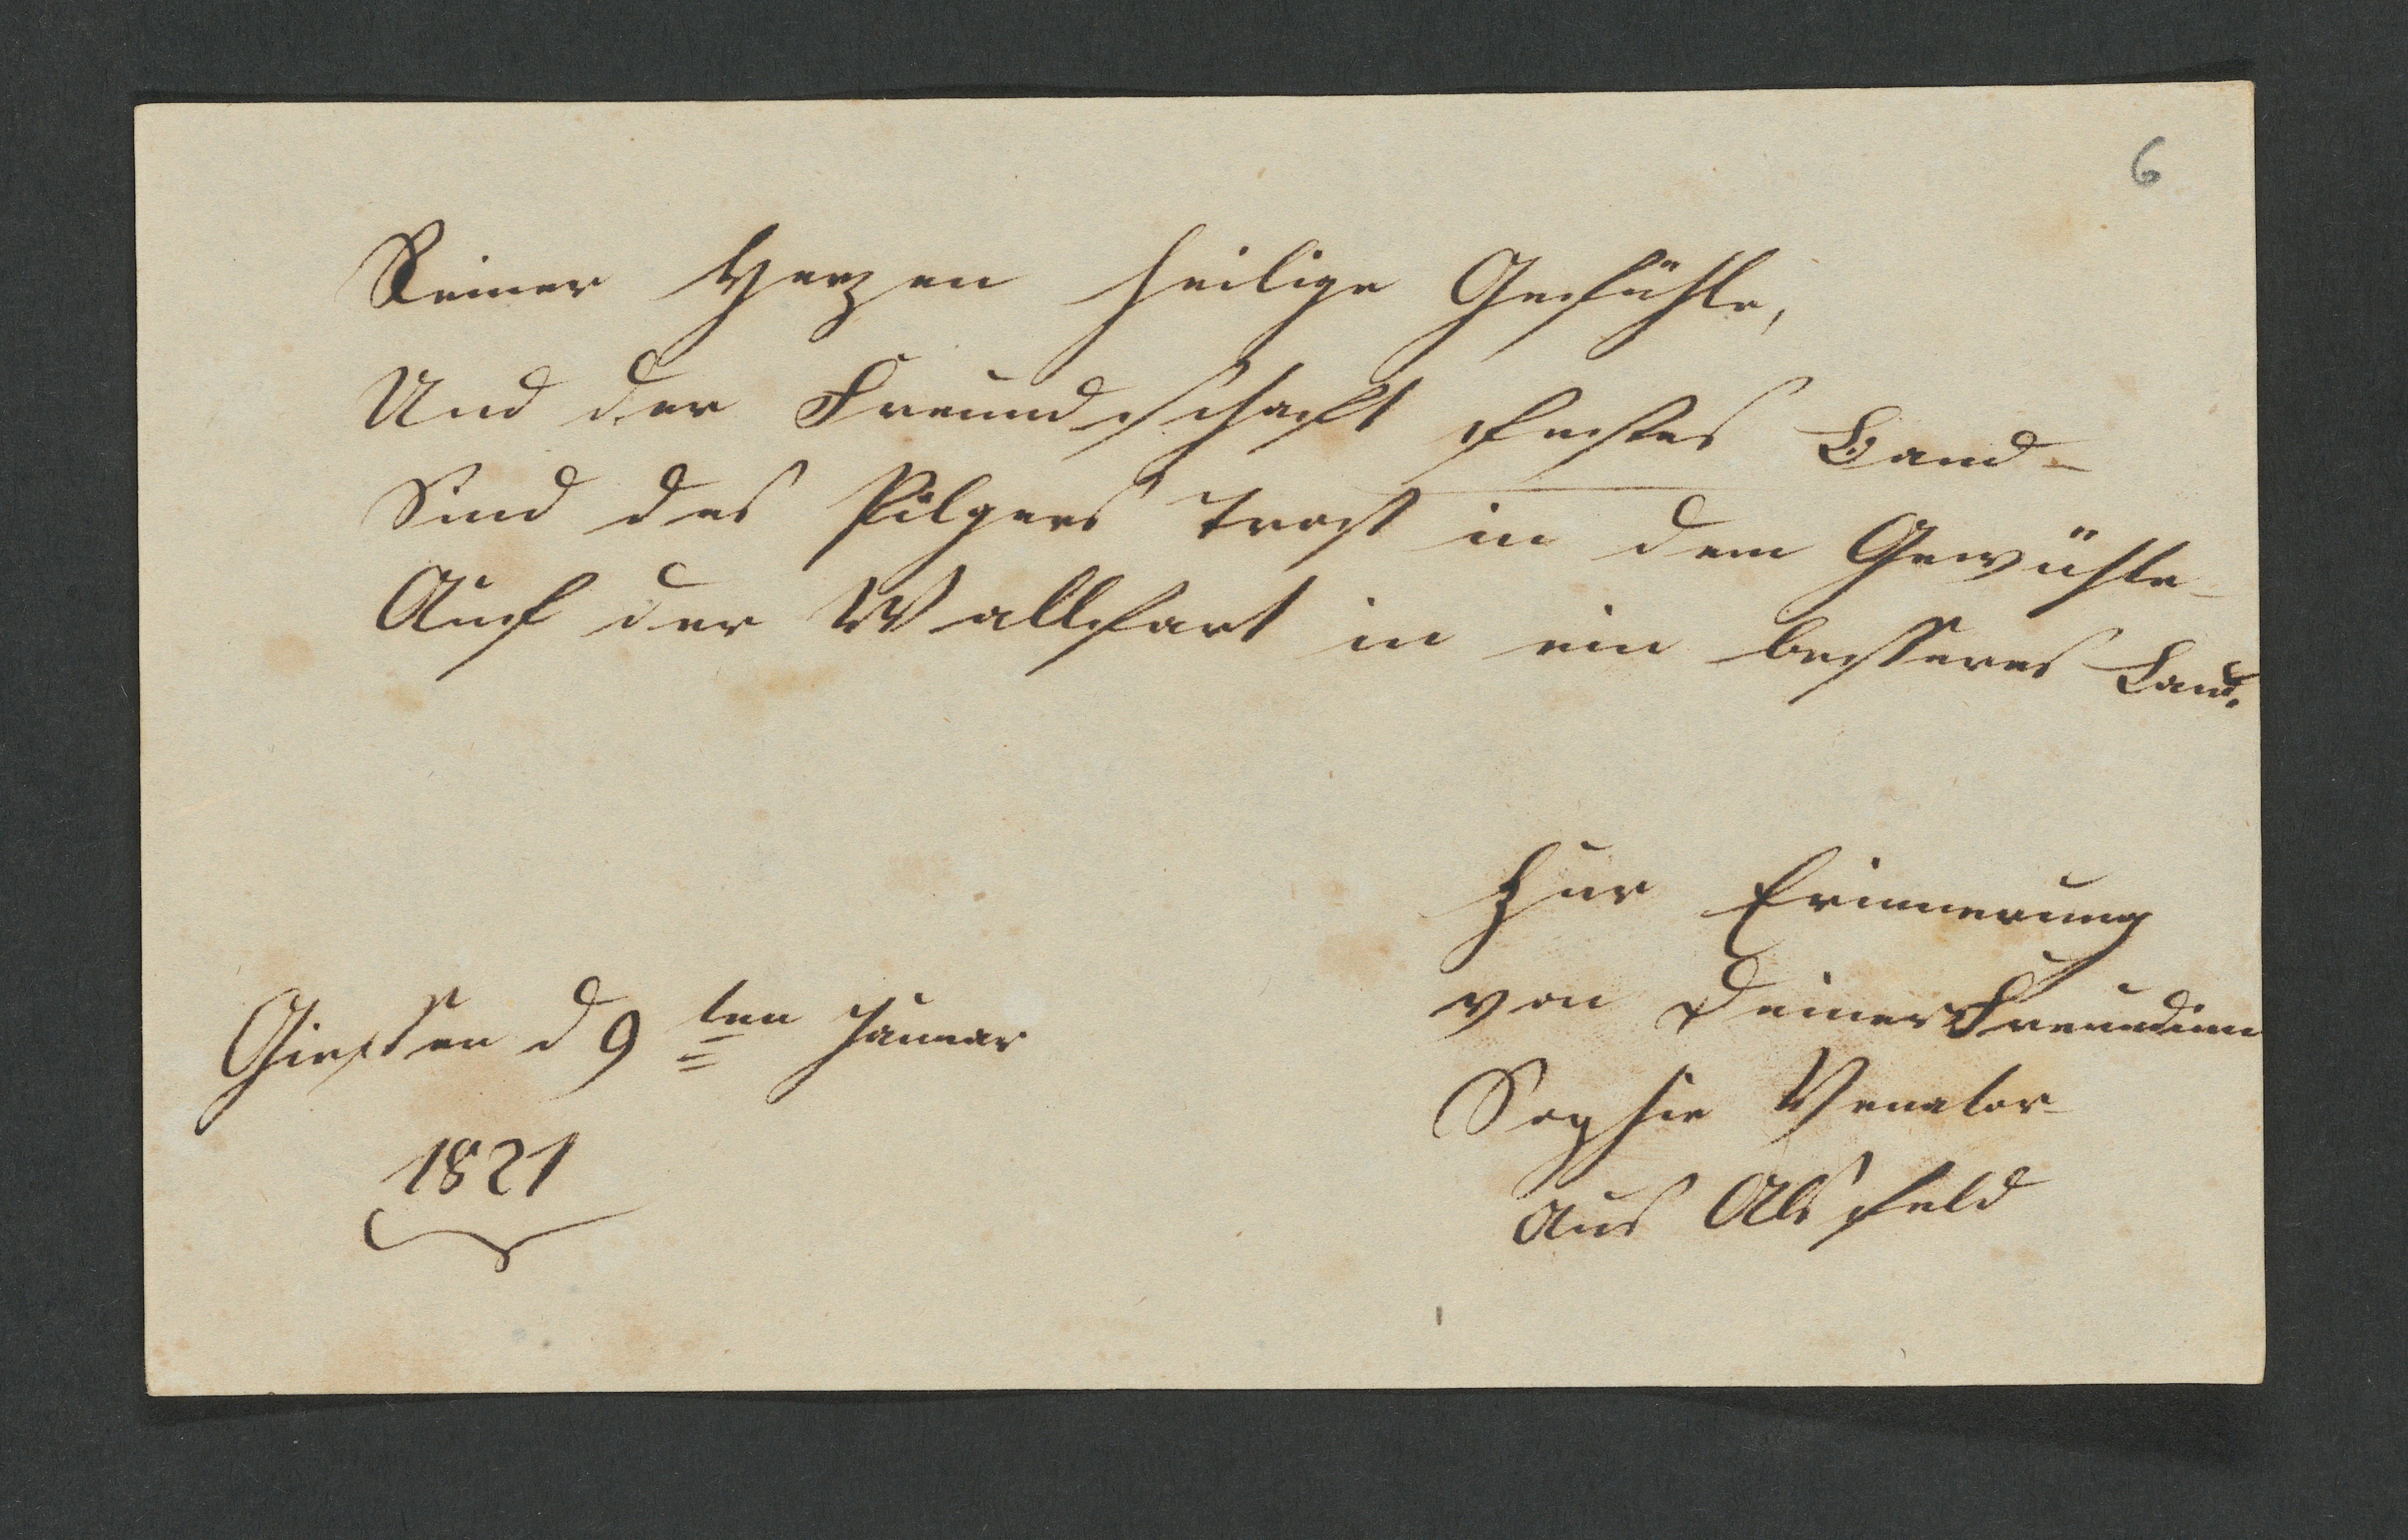 6
Reiner Herzen heilige Gefühle,
Und der Freundschaft festes Band-
Sind des Pilgers Trost in dem Gewühle-
Auf der Wallfart in ein besseres Land.
Zur Erinnerung
von Deiner Freundinn
Sophie Venator
aus Alsfeld
Giessen d 9ten Januar
1821